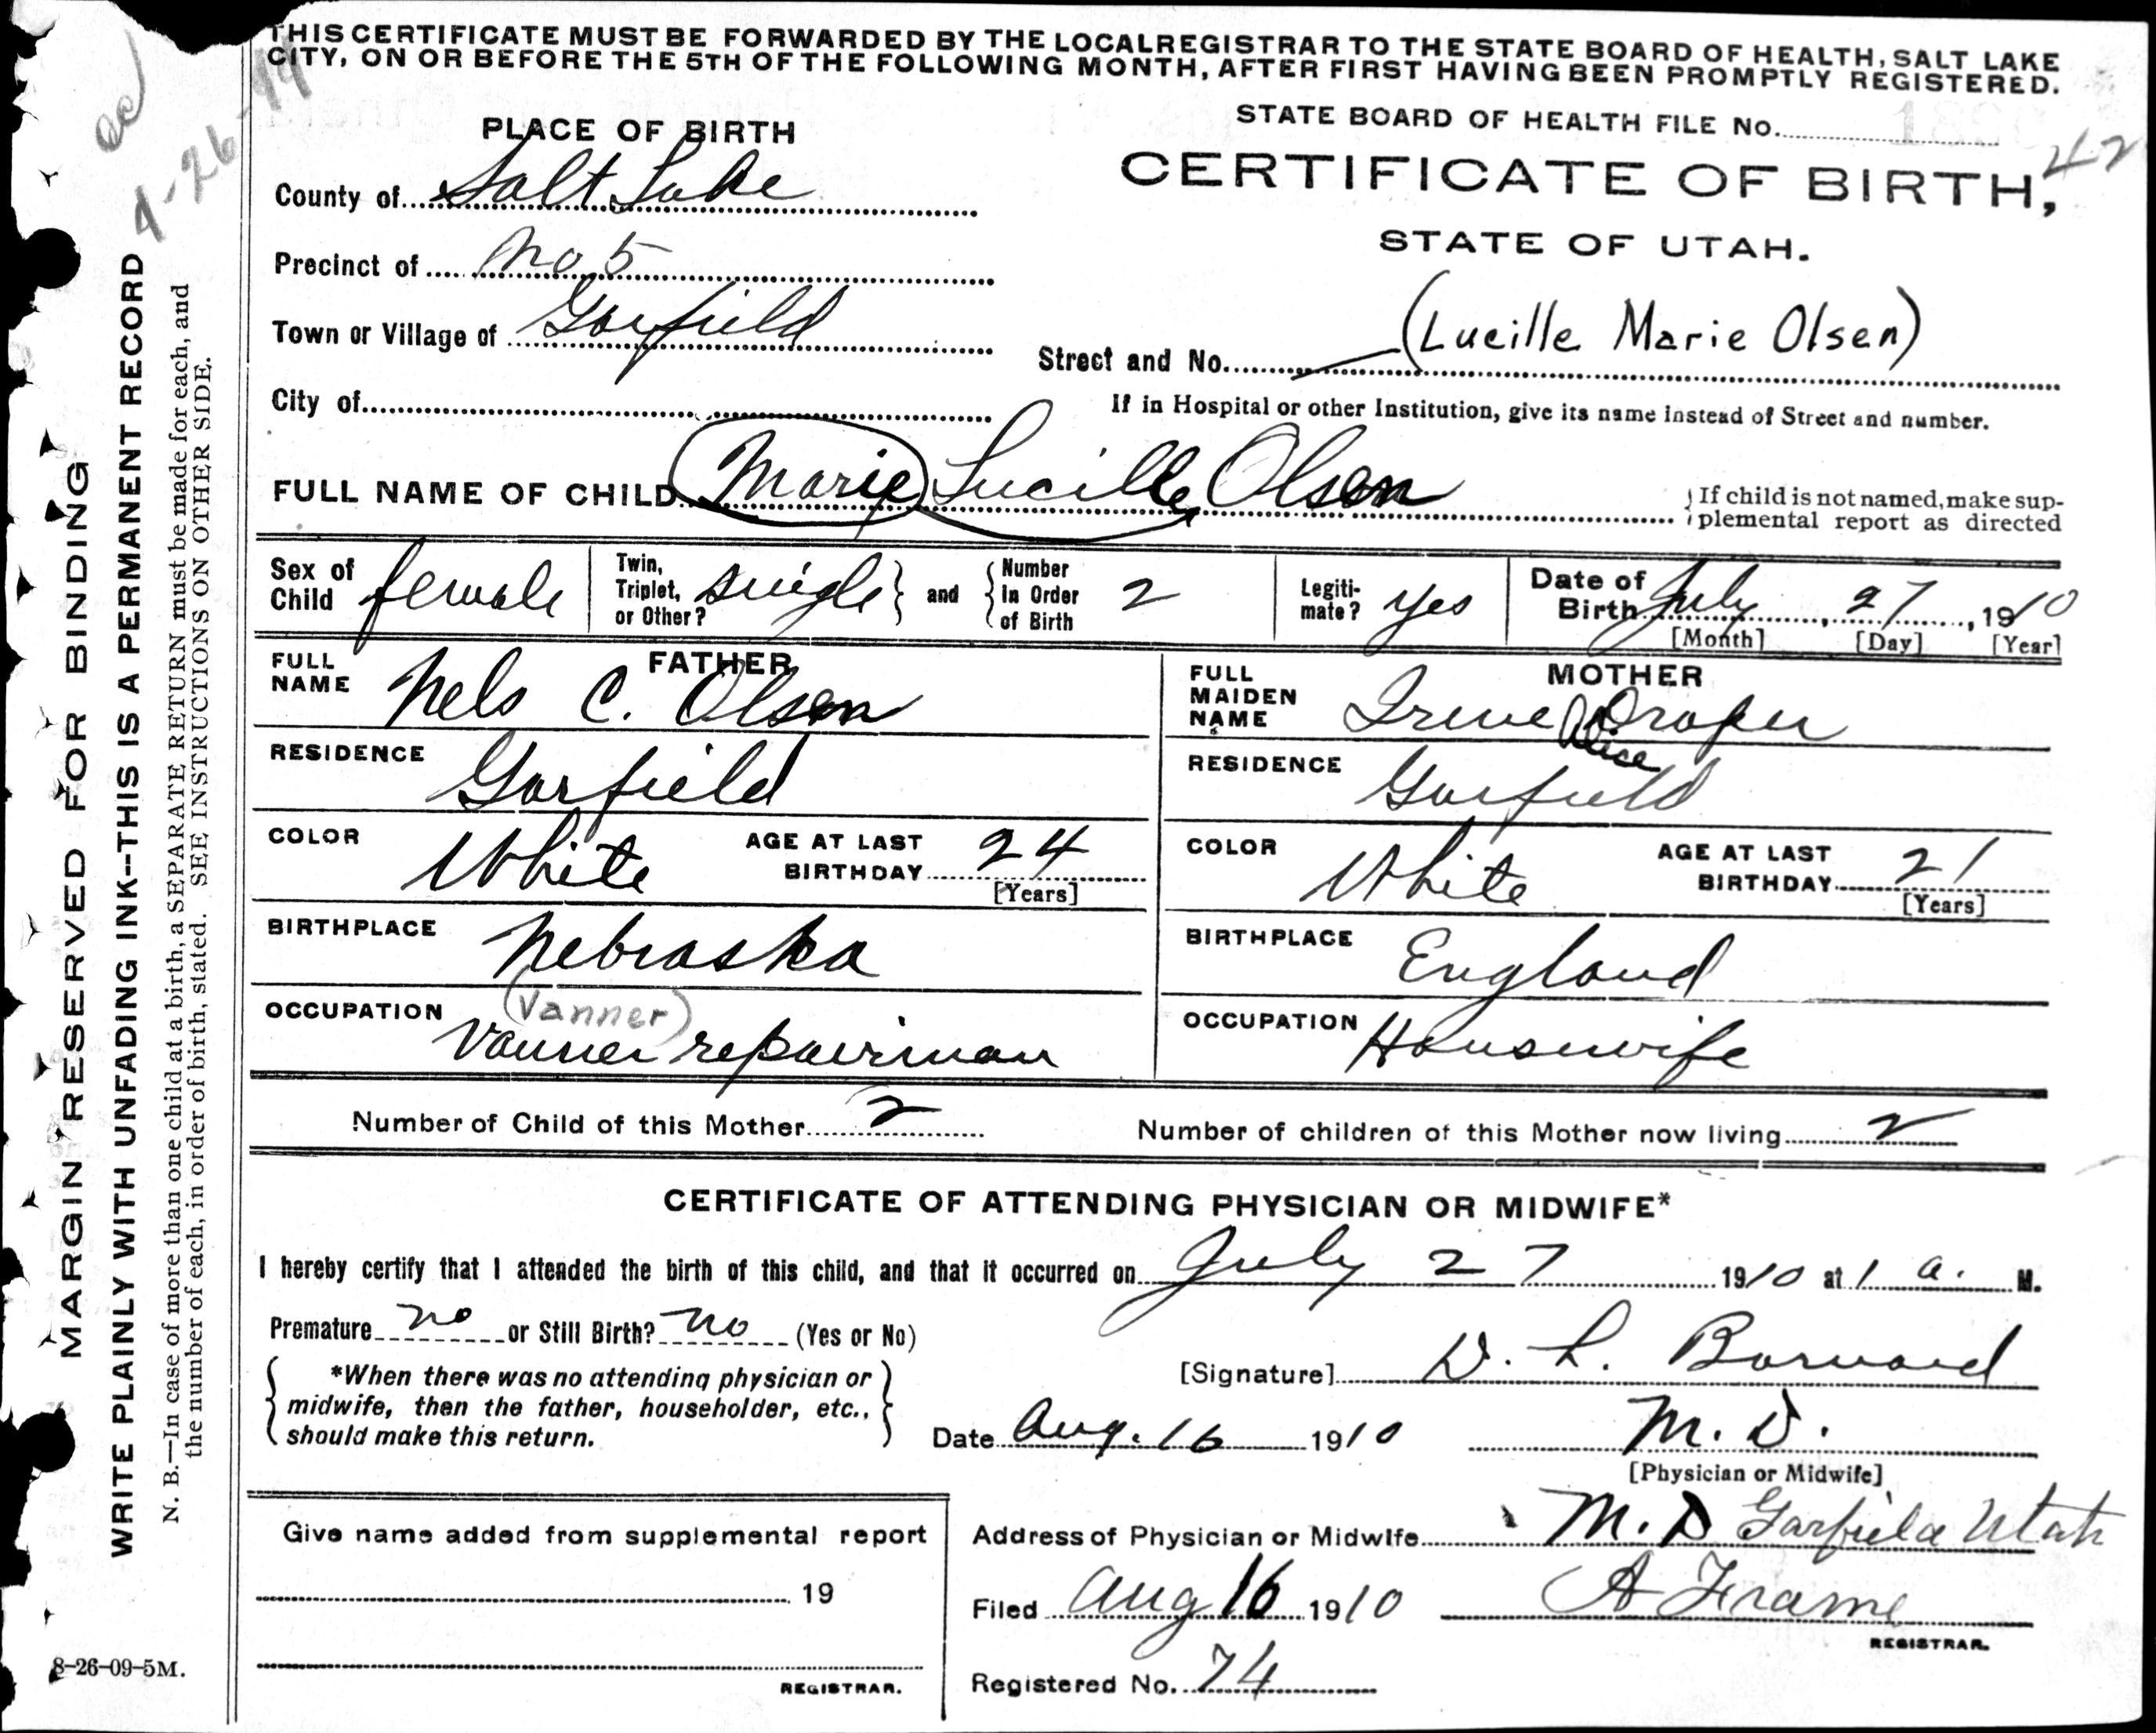 THIS CERTIFICATE MUST BE FORWARDED BY THE LOCAL REGISTRAR TO THE STATE BOARD OF HEALTH, SALT LAKE
CITY, ON OR BEFORE THE 5TH OF THE FOLLOWING MONTH, AFTER FIRST HAVING BEEN PROMPTLY REGISTERED.
STATE BOARD OF HEALTH FILE No.
42
PLACE OF BIRTH
CERTIFICATE OF BIRTH,
STATE OF UTAH.
County of Salt Lake
Precinct of No 5
Town or Village of Garfield
Street and No. (Lucille Marie Olsen)
City of
If in Hospital or other Institution, give its name instead of Street and number.
FULL NAME OF CHILD Marie Lucille Olsen
If child is not named, make sup-
plemental report as directed
Sex of Child female
Twin, Triplet, or Other? single and Number In Order of Birth 2
Legiti-mate? yes
Date of Birth July, 27, 1910
[Month] [Day] [Year]
FATHER
FULL NAME Nels C. Olsen
RESIDENCE Garfield
COLOR White AGE AT LAST BIRTHDAY 24
[Years]
BIRTHPLACE Nebraska
(Vanner)
OCCUPATION Vanner repairman
MOTHER
FULL MAIDEN NAME Irene Alice Draper
RESIDENCE Garfield
COLOR White AGE AT LAST BIRTHDAY 21
[Years]
BIRTHPLACE England
OCCUPATION Housewife
Number of Child of this Mother 2 Number of children of this Mother now living 2
CERTIFICATE OF ATTENDING PHYSICIAN OR MIDWIFE*
I hereby certify that I attended the birth of this child, and that it occurred on July 27 1910 at 1 a. M.
Premature no or Still Birth? no (Yes or No)
*When there was no attending physician or
midwife, then the father, householder, etc.,
should make this return.
[Signature] D. L. Barnard
Date Aug. 16 1910 M. D.
[Physician or Midwife]
Give name added from supplemental report
19
REGISTRAR.
Address of Physician or Midwife M. D Garfield Utah
Filed Aug 16 1910 A Frame
REGISTRAR.
Registered No. 74
MARGIN RESERVED FOR BINDING
WRITE PLAINLY WITH UNFADING INK--THIS IS A PERMANENT RECORD
N. B.—In case of more than one child at a birth, a SEPARATE RETURN must be made for each, and
the number of each, in order of birth, stated. SEE INSTRUCTIONS ON OTHER SIDE.
8-26-09-5M.